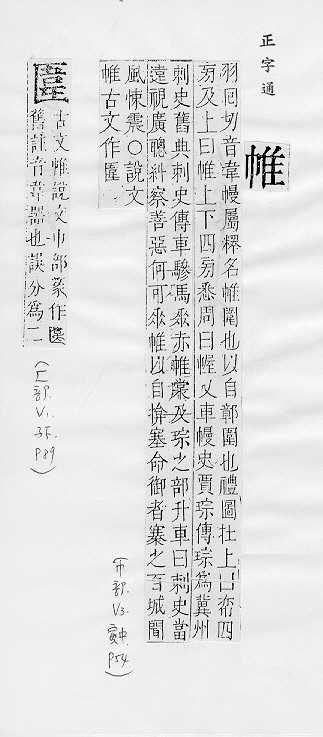 正字通
帷
羽回切音韋幔屬釋名帷圍也以自鄣圍也禮圖在上曰帟四
旁及上曰帷上下四旁悉周曰幄又車幔史賈琮傳琮爲冀州
刺史舊典刺史傳車驂馬𠂹赤帷裳及琮之部升車曰刺史當
遠視廣聽糾察善惡何可𠂹帷以自掩塞命御者褰之百城聞
風悚震○說文
帷古文作匰
(巾部. V3. 寅中. P54)
古文帷說文巾部篆作
舊註音韋器也誤分爲二
(匚部. V1. 子下. P89)